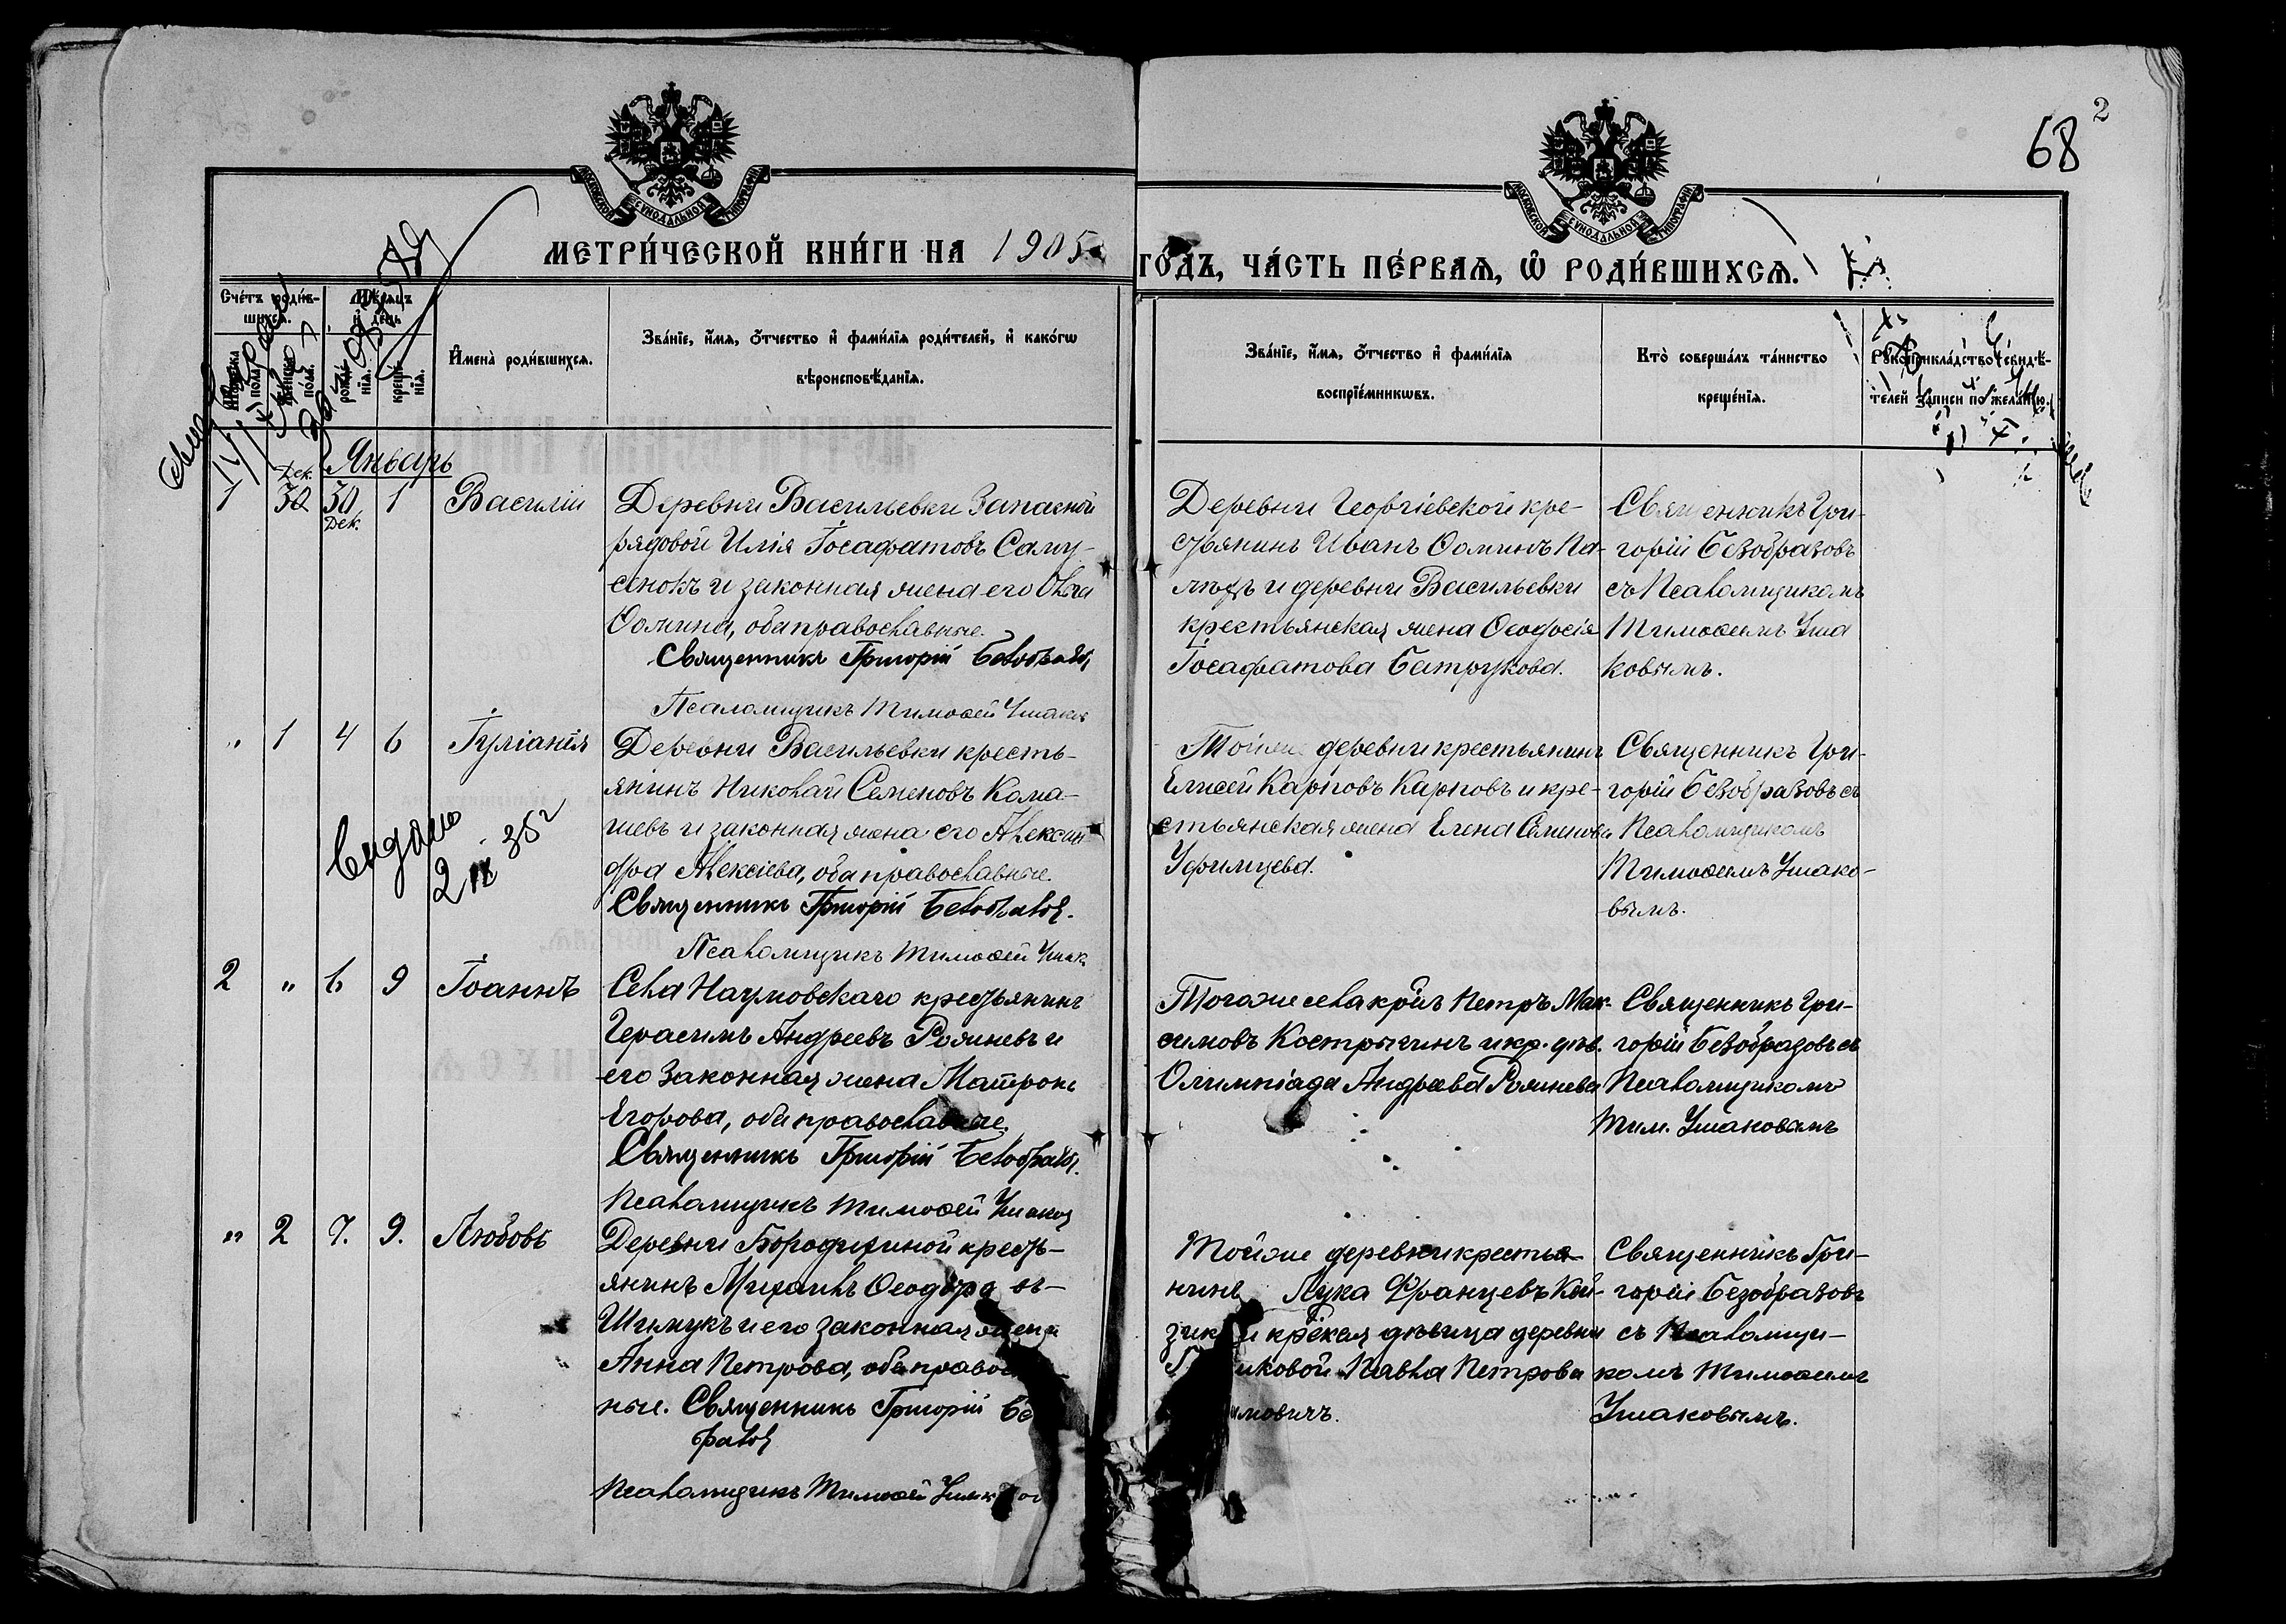 68
2
МОСКОВСКОЙ СУНОДАЛЬНОЙ ТИПОГРАФІИ
МОСКОВСКОЙ СУНОДАЛЬНОЙ ТИПОГРАФІИ
МЕТРИ́ЧЕСКОЙ КНИ́ГИ НА 1905
ГО́ДЪ, ЧА́СТЬ ПЕ́РВАѦ, Ѽ РОДИ́ВШИХСѦ.
Сче́тъ роди́в-
шихсѧ.
Мѣ́сѧцъ
и҆ де́нь
по́ла.
по́ла.
рожде́-
нїѧ.
креще́-
нїѧ.
И҆мена̀ роди́вшихсѧ.
Зва́нїе, и҆́мѧ, ѻ҆́тчество и҆ фами́лїѧ роди́телей, и҆ како́гѡ
вѣроисповѣ́данїѧ.
Зва́нїе, и҆́мѧ, ѻ҆́тчество и҆ фами́лїѧ
воспрїе́мникѡвъ.
Кто̀ соверша́лъ та́инство
креще́нїѧ.
Рꙋкоприкла́дство свидѣ́-
телей за́писи по жела́нїю.
Январь
Дек.
1 30 30 1 Василій
Дек.
Деревни Васильевки Запасной
рядовой Илія Іосафатовъ Саму-
сенокъ и законная жена его Ольга
Ѳомина, оба православные.
Священникъ Григорій Безобразовъ
Псаломщикъ Тимоѳей Ушаков
Деревни Георгіевской кре-
стьянинъ Иванъ Ѳоминъ
и деревни Васильевки
крестьянская жена Ѳеодосія
Іосафатова Батрукова.
Священникъ Гри-
горій Безобразовъ
съ Псаломщикомъ
Тимоѳеемъ Уша
ковымъ.
„ 1 4 6 Іуліанія
Деревни Васильевки кресть-
янинъ Николай Семеновъ Кома-
шевъ и законная жена его Алексан
дра Алексіева, оба православные.
Священникъ Григорій Безобразовъ.
Псаломщикъ Тимоѳей Ушак
Тойже деревни крестьянинъ
Елисей Карповъ Карповъ и кре-
стьянская жена Елена Семенова
Уфимцева.
Священникъ Гри-
горій Безобразовъ съ
Псаломщикомъ
Тимоѳеемъ Ушако-
вымъ.
Выдано
2 IX 35 г
2 „ 6 9 Іоаннъ
Села Наумовскаго крестьянинъ
Герасимъ Андреевъ Рожневъ и
его законная жена Матрона
Егорова, оба православные.
Священникъ Григорій Безобразовъ.
Псаломщикъ Тимоѳей Ушаков
Тогоже села кр-нъ Петръ Мак-
симовъ Кострыгинъ и кр. дѣв.
Олимпіада Андреева Рожнева
Священникъ Гри-
горій Безобразовъ съ
Псаломщикомъ
Тим. Ушаковымъ
„ 2 7. 9. Любовь
Деревни Бородихиной кресть-
янинъ Михаилъ Ѳеодоровъ-
Шимукъ и его законная жена
Анна Петрова, оба правос
ные. Священникъ Григорій Бе
разовъ
Псаломщикъ Тимоѳей Ушаков
Тойже деревни крестья-
нинъ Лука Францевъ Кой-
зик и кр-ская дѣвица деревни
иковой Павла Петрова
имовичъ.
Священникъ Гри-
горій Безобразовъ
съ Псаломщи-
комъ Тимоѳеемъ
Ушаковымъ.